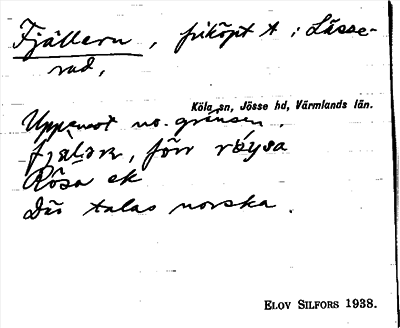 Fjällern, friköpt t i Lässe-
rud,
Köla sn, Jösse hd, Värmlands län.
Uppemot no. gränsen.
fjælərn, förr røysa
Rösa ek
Där talas norska.
ELOV SILFORS 1938.